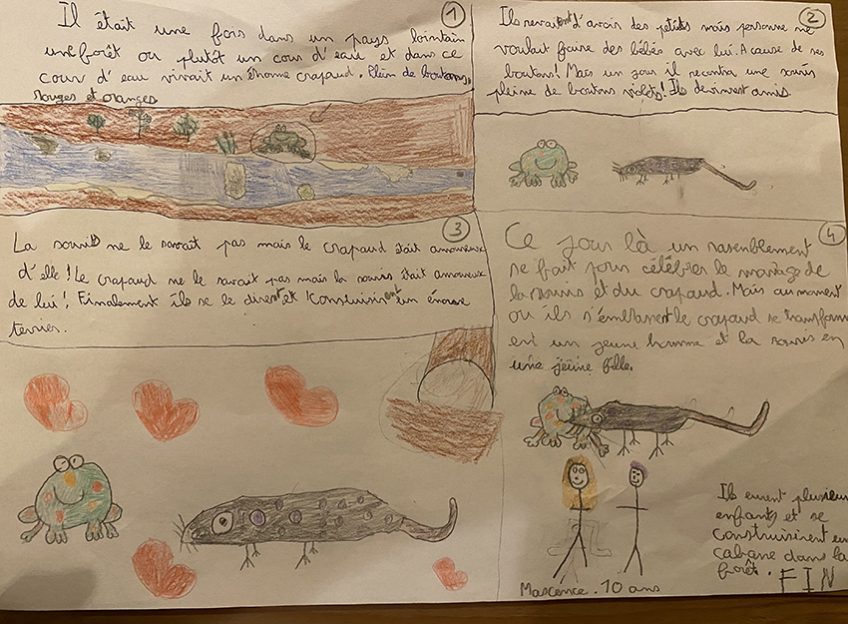 1
Il était une fois dans un pays lointain
une forêt ou plutôt un cour d'eau et dans ce
cour d'eau vivait un énorme crapaud. Plein de boutons,
rouges et oranges
2
Ils revaient d'avoir des petits mais personne ne
voulait faire des bébés avec lui. A cause de ses
boutons! Mais un jour il recontra une souris
pleine de boutons violets! Ils devinrent amis.
3
La souris ne le savait pas mais le crapaud était amoureux
d'elle! Le crapaud ne le savait pas mais la souris était amoureux
de lui! Finalement ils se le dirent et construisirent un énorme
terrier.
4
Ce jour là un rasemblement
se fait pour célébrer le mariage de
la souris et du crapaud. Mais au moment
ou ils s'emblassent le crapaud se transforme
est un jeune homme et la souris en
une jeune fille.
Ils eurent plusieurs
enfants et se
construisirent une
cabane dans la
forêt. FIN
10 ans